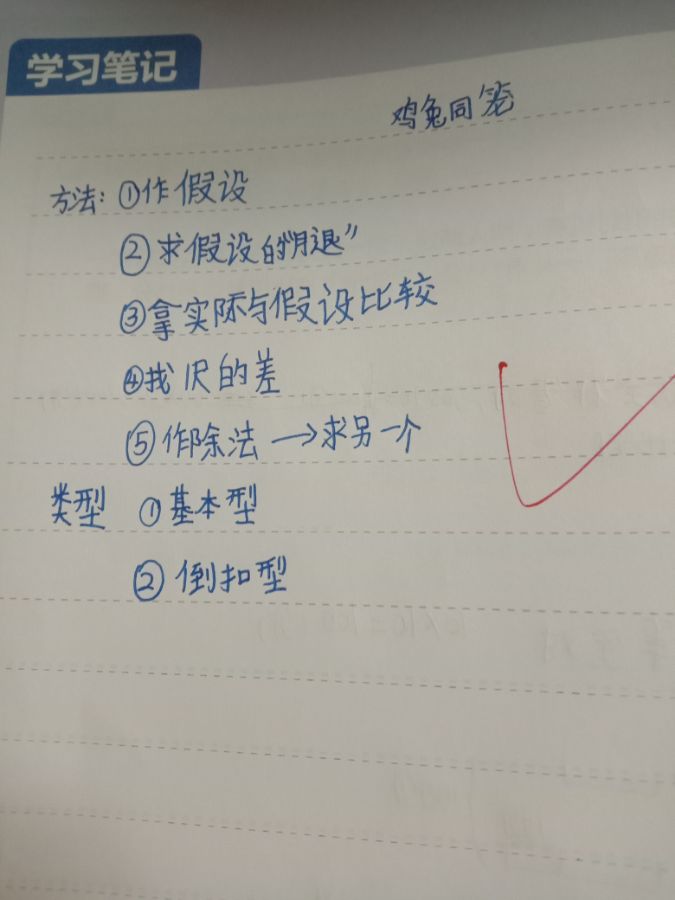 学习笔记
鸡兔同笼
方法：①作假设
②求假设的"腿"
③拿实际与假设比较
④找 的差
⑤作除法 →求另一个
类型 ①基本型
② 倒扣型